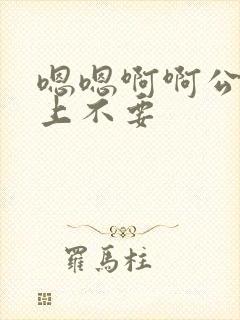 嗯嗯啊啊公
上不要
羅馬柱